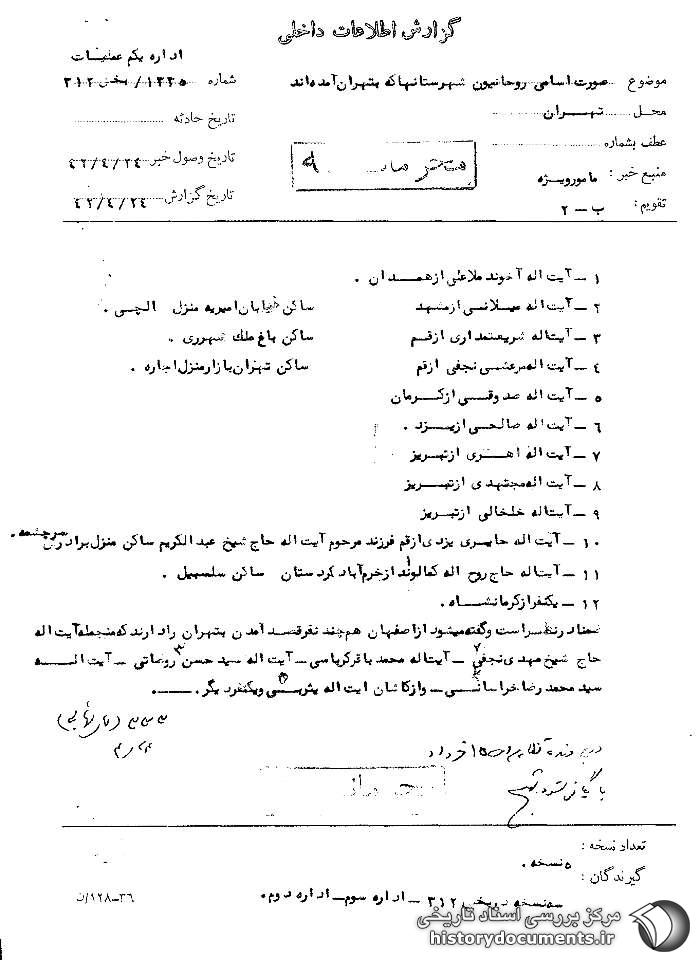 گزارش اطلاعات داخلی
اداره یکم عملیات
موضوع صورت اسامی روحانیون شهرستانها که بتهران آمده‌اند
شماره ۱۲۲۵/بخش ۳۱۲
محل تهران
تاریخ حادثه
عطف بشماره
تاریخ وصول خبر ۴۲/۴/۲۴
منبع خبر: مامورویژه
تاریخ گزارش ۴۲/۴/۲۴
تقویم: ب-۲
۱ - آیت اله آخوند ملاعلی از همدان .
۲ - آیت اله میلانی از مشهد ساکن خیابان امیریه منزل الچی .
۳ - آیت‌اله شریعتمداری از قم ساکن باغ ملک شهرری .
۴ - آیت اله مرعشی نجفی از قم ساکن تهران بازار منزل اجاره .
۵ - آیت اله صدوقی از کرمان
۶ - آیت اله صالحی از یزد .
۷ - آیت اله اهری از تبریز
۸ - آیت اله مجتهدی از تبریز
۹ - آیت‌اله خلخالی از تبریز
۱۰ - آیت اله حایری یزدی از قم فرزند مرحوم آیت اله حاج شیخ عبدالکریم ساکن منزل برادرش سرچشمه .
۱۱ - آیت‌اله حاج روح اله کمالوند از خرم‌آباد کردستان ساکن سلسبیل .
۱۲ - یکنفر از کرمانشاه .
ضمناً وگفته میشود از اصفهان هم چند نفر قصد آمدن بتهران را دارند که منجمله آیت اله
حاج شیخ مهدی نجفی - آیت‌اله محمد باقر کرباسی - آیت اله سید حسن روحانی - آیت اله
سید محمد رضا خراسانی - و از کاشان آیت اله یثربی و یکنفر دیگر .
۱۵ خرداد
تعداد نسخه :
۵ نسخه .
گیرندگان :
سه نسخه در بخش ۳۱۲ - اداره سوم - اداره دوم .
۳۶-۱۲۸/ن
مرکز بررسی اسناد تاریخی
historydocuments.ir